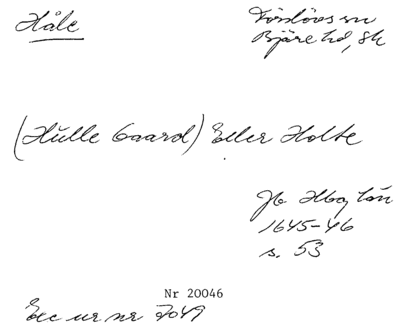 Håle
Förslövs sn
Bjäre hd, Sk
(Hulle Gaard) Eller Holte
Jb Hbg län
1645-46
s. 53
Nr 20046
Exc ur nr 7049